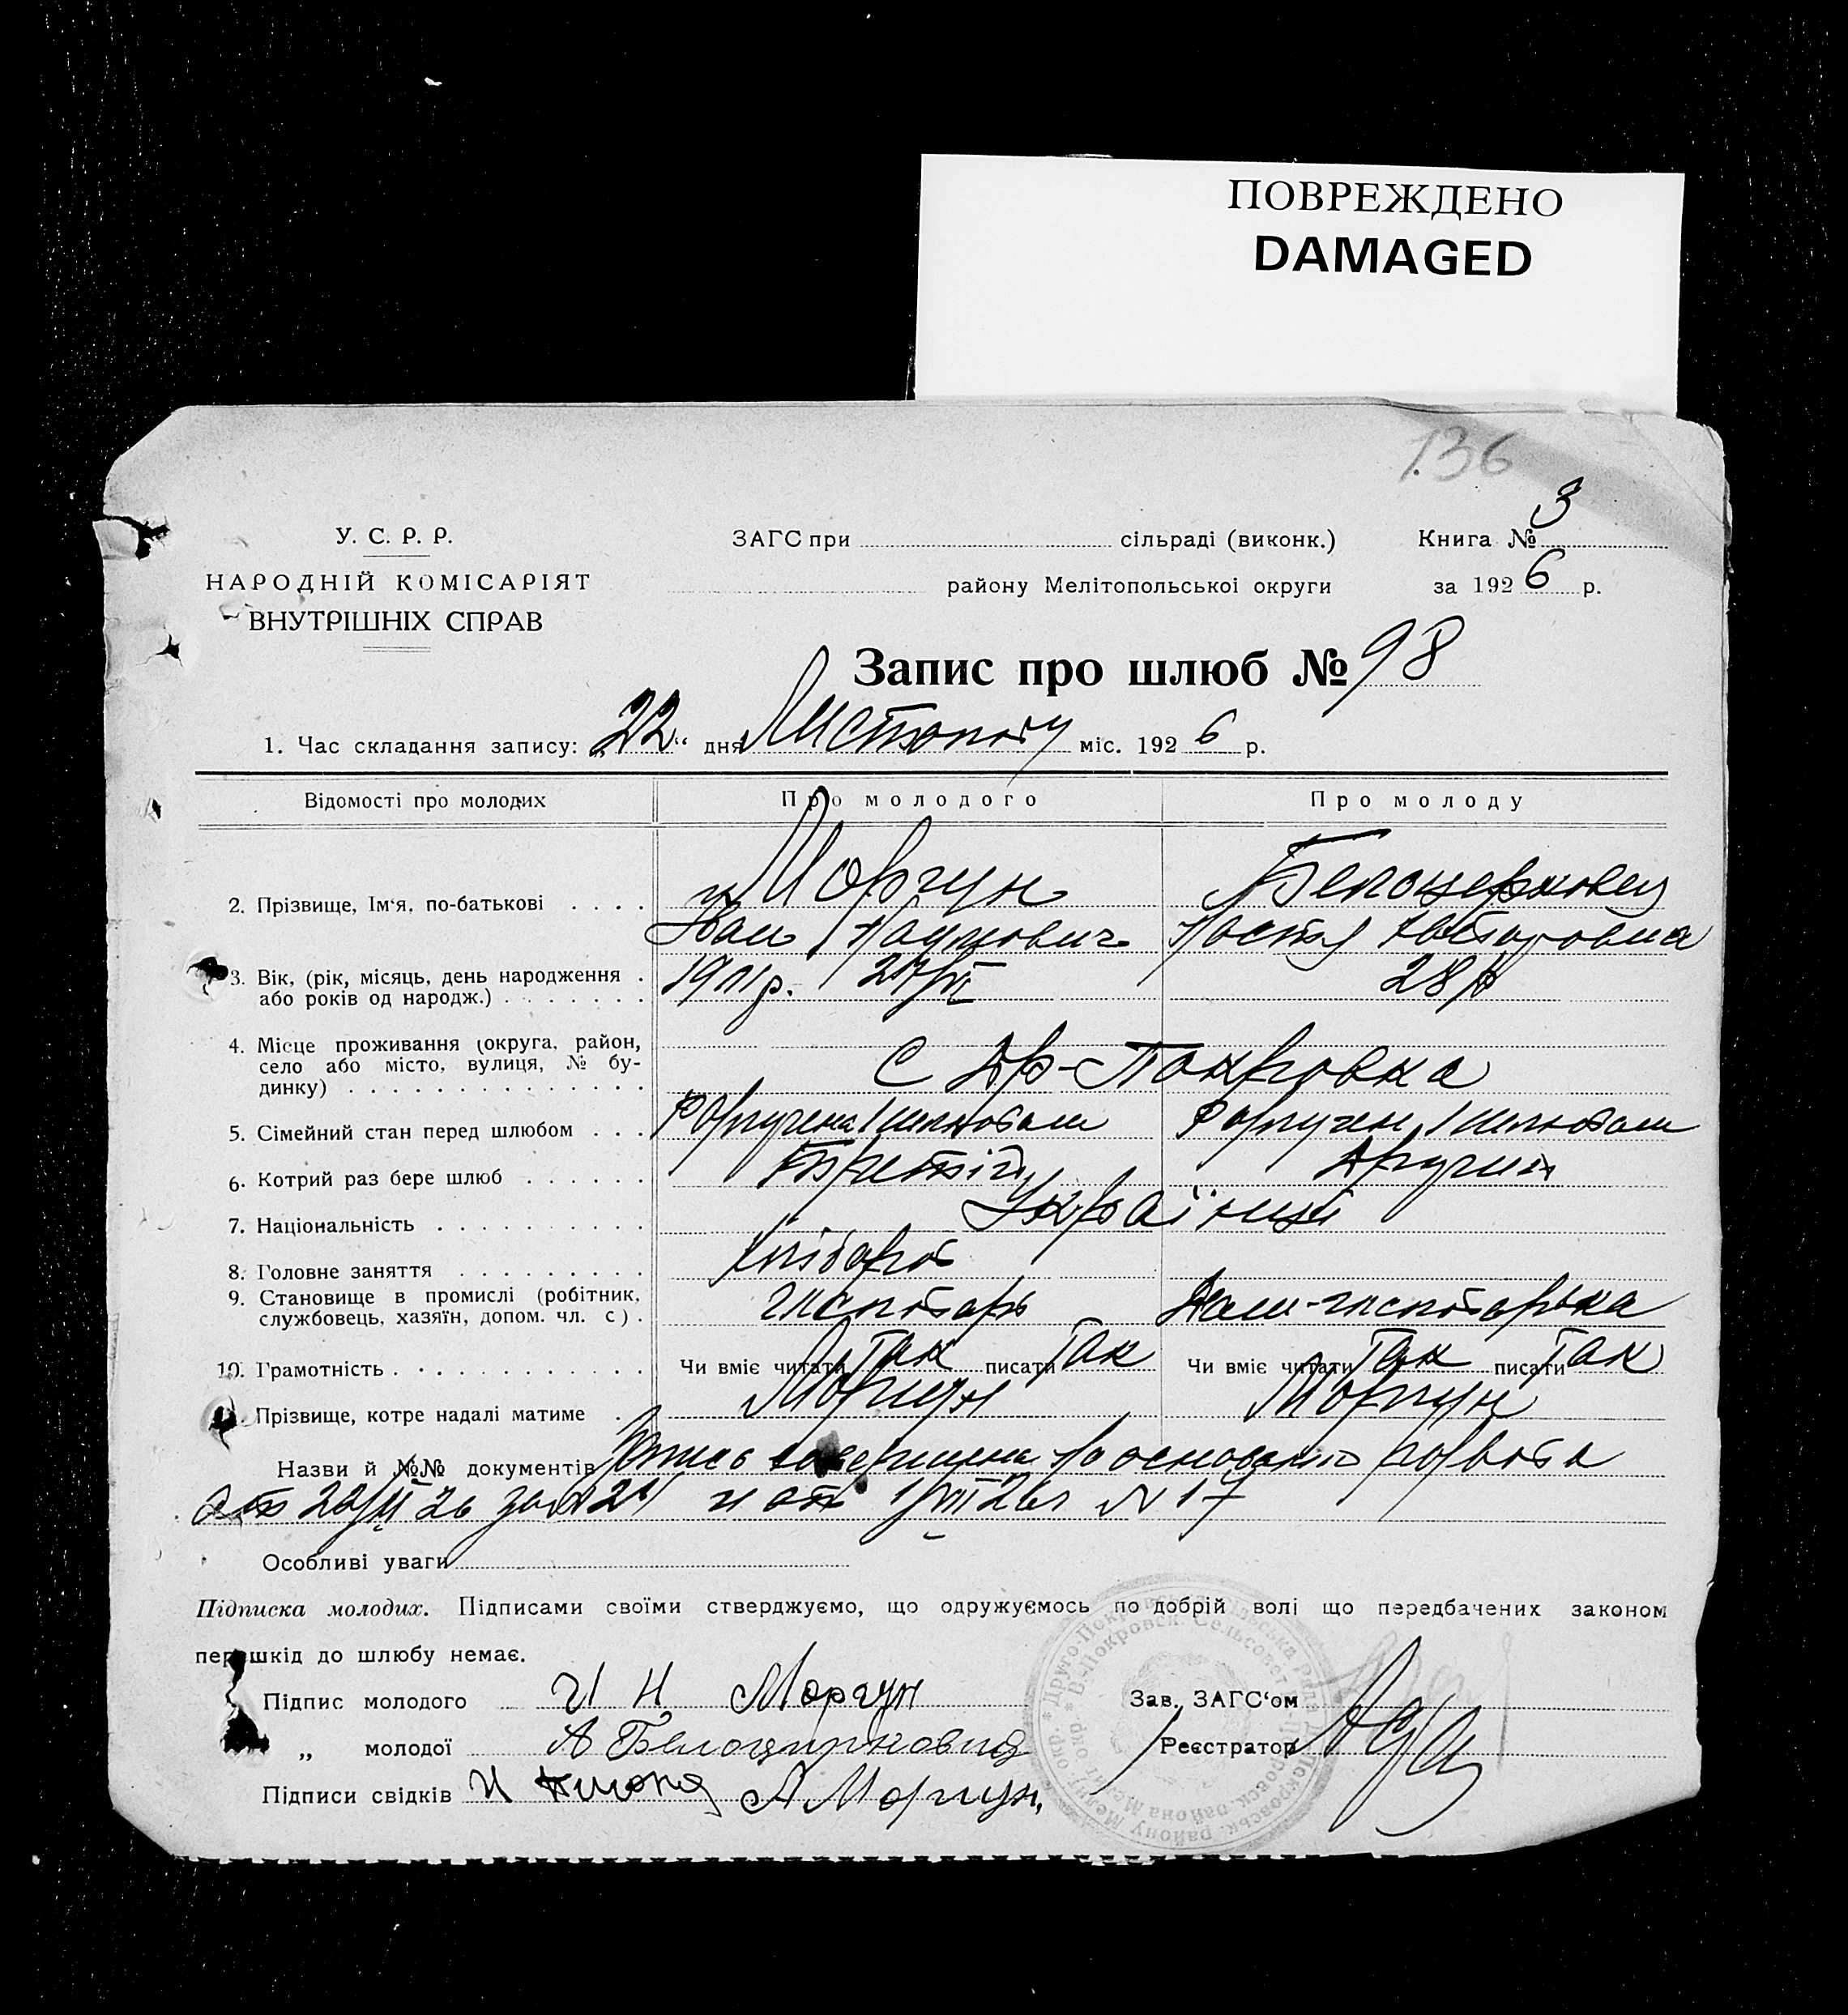 ПОВРЕЖДЕНО
DAMAGED
136
У. С. Р. Р.
НАРОДНІЙ КОМІСАРІЯТ
ВНУТРІШНІХ СПРАВ
ЗАГС при сільраді (виконк.)
району Мелітопольської округи
Книга № 3
за 1926 р.
Запис про шлюб № 98
1. Час складання запису: „22“ дня Листопаду міс. 1926 р.
Відомості про молодих Про молодого Про молоду
2. Прізвище, Ім'я, по-батькові Моргун Белоцерковец
Иван Наумович Настя
3. Вік, (рік, місяць, день народження 1901 р. 28 р
або років од народж.)
4. Місце проживання (округа, район,
село або місто, вулиця, № бу-
динку) С Др-Покровка
5. Сімейний стан перед шлюбом
6. Котрий раз бере шлюб Третій Другий
7. Національність Українці
8. Головне заняття хлібороб
9. Становище в промислі (робітник,
службовець, хазяїн, допом. чл. с). господарь Дом-господарька
10. Грамотність Чи вміє читати Так писати Так Чи вміє читати Так писати Так
Прізвище, котре надалі матиме Моргун Моргун
Назви й №№ документів Запис совершена на основании розвода
от 26 за № 24 и от 1/VII 26 г № 17
Особливі уваги
Підписка молодих. Підписами своїми стверджуємо, що одружуємось по добрій волі що передбачених законом
перешкід до шлюбу немає.
Підпис молодого И Н Моргун
Зав. ЗАГС'ом
„ молодої А Белоцирковца
Реєстратор
Підписи свідків И А Моргун